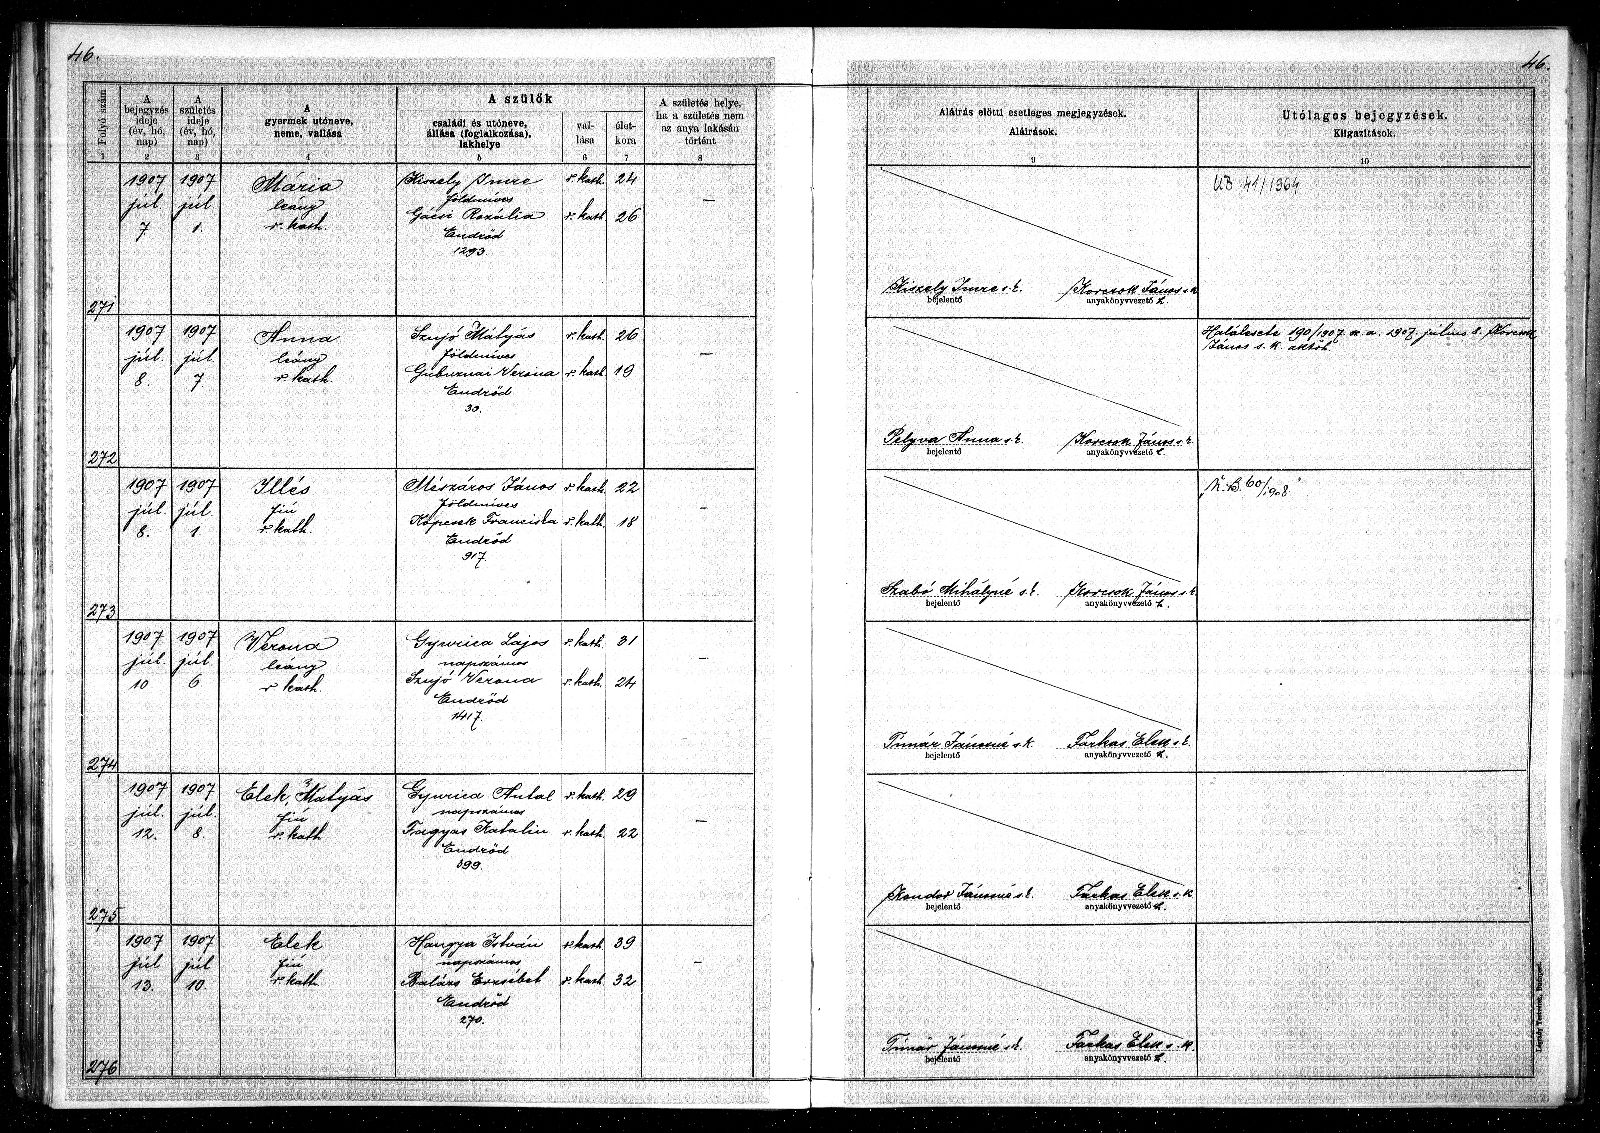 46.
46.
Folyó szám
A bejegyzés ideje (év, hó, nap)
A születés ideje (év, hó, nap)
A gyermek utóneve, neme, vallása
A szülők
családi és utóneve, állása (foglalkozása), lakhelye
vallása
életkora
A születés helye, ha a születés nem az anya lakásán történt
Aláírás előtti esetleges megjegyzések.
Aláírások.
Utólagos bejegyzések.
Kiigazítások.
1 2 3 4 5 6 7 8 9 10
271
1907 júl 7.
1907 júl 1.
Mária
leány
r. kath.
Kiszely Imre r. kath. 24
földmíves
Gácsi Rozália r. kath. 26
Endrőd
1293.
—
Kiszely Imre s. k.
bejelentő
Korcsok János s. k.
anyakönyvvezető h.
UB 41/1964
272
1907 júl. 8.
1907 júl. 7
Anna
leány
r. kath.
Szujó Mátyás r. kath. 26
földmíves
Gubuznai Verona r. kath. 19
Endrőd
30.
—
Pelyva Anna s. k.
bejelentő
Korcsok János s. k.
anyakönyvvezető h.
Halálesete 190/1907 a. a. 1907. július 8. Korcsok
János s. k. aktőt.
273
1907 júl. 8.
1907 júl. 1
Illés
fiú
r. kath.
Mészáros János r. kath. 22
földmíves
Kopcsek Franciska r. kath. 18
Endrőd
917.
—
Szabó Mihályné s. k.
bejelentő
Korcsok János s. k.
anyakönyvvezető h.
60/1908.
274
1907 júl. 10
1907 júl. 6
Verona
leány
r. kath.
Gyurica Lajos r. kath. 31
napszámos
Szujó Verona r. kath. 24
Endrőd
1417.
—
Timár Jánosné s. k.
bejelentő
Farkas Elek s. k.
anyakönyvvezető h.
275
1907 júl. 12.
1907 júl. 8.
Elek, Mátyás
fiú
r. kath.
Gyurica Antal r. kath. 29
napszámos
Fagyas Katalin r. kath. 22
Endrőd
399.
—
Kondor Jánosné s. k.
bejelentő
Farkas Elek s. k.
anyakönyvvezető h.
276
1907 júl 13.
1907 júl 10.
Elek
fiú
r. kath.
Hangya István r. kath. 39
napszámos
Balázs Erzsébet r. kath. 32
Endrőd
270.
—
Timár Jánosné s. k.
bejelentő
Farkas Elek s. k.
anyakönyvvezető h.